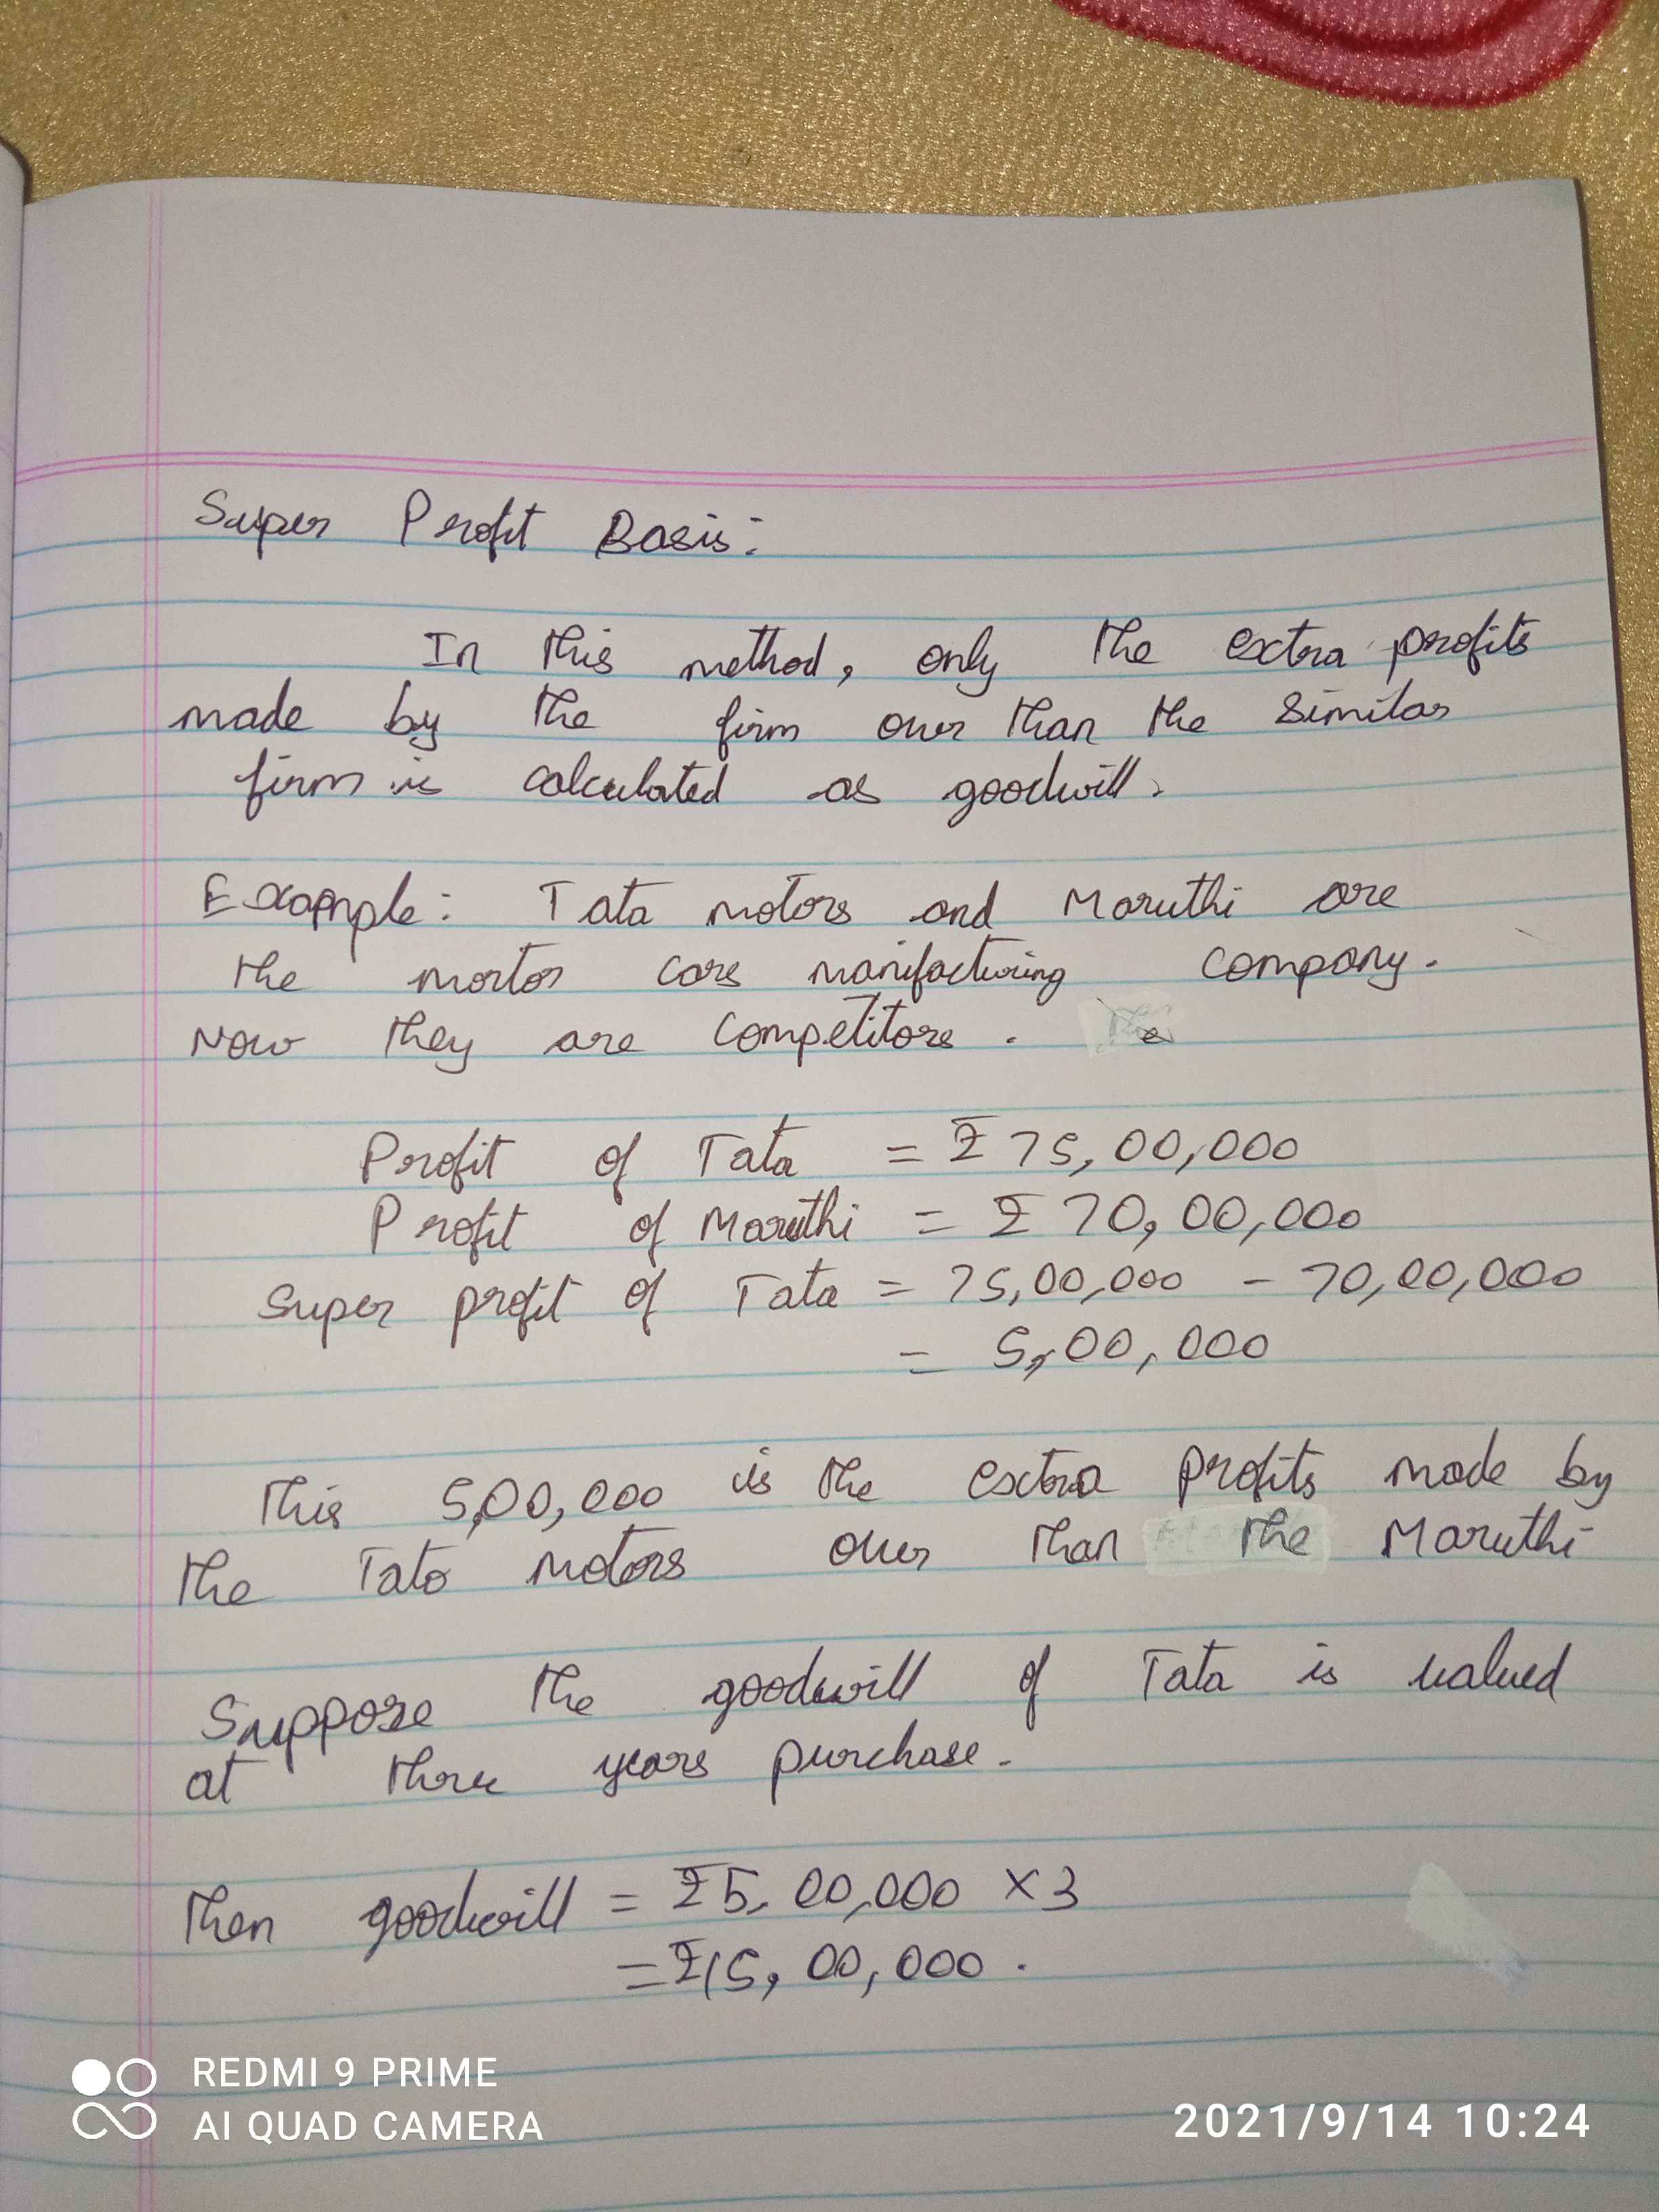 Super Profit Basis:
In this method, only the extra profits
made by the firm over than the similar
firm is calculated as goodwill.
Example: Tata motors and Maruthi are
the mortor cars manifacturing company.
Now they are competitors. The
Profit of Tata = ₹ 75,00,000
Profit of Maruthi = ₹ 70,00,000
Super profit of Tata = 75,00,000 - 70,00,000
= 5,00,000
This 5,00,000 is the extra profits made by
the Tata motors over than the Maruthi
Suppose the goodwill of Tata is valued
at three years purchase.
Then goodwill = ₹5,00,000 × 3
= ₹15,00,000.
REDMI 9 PRIME
AI QUAD CAMERA
2021/9/14 10:24